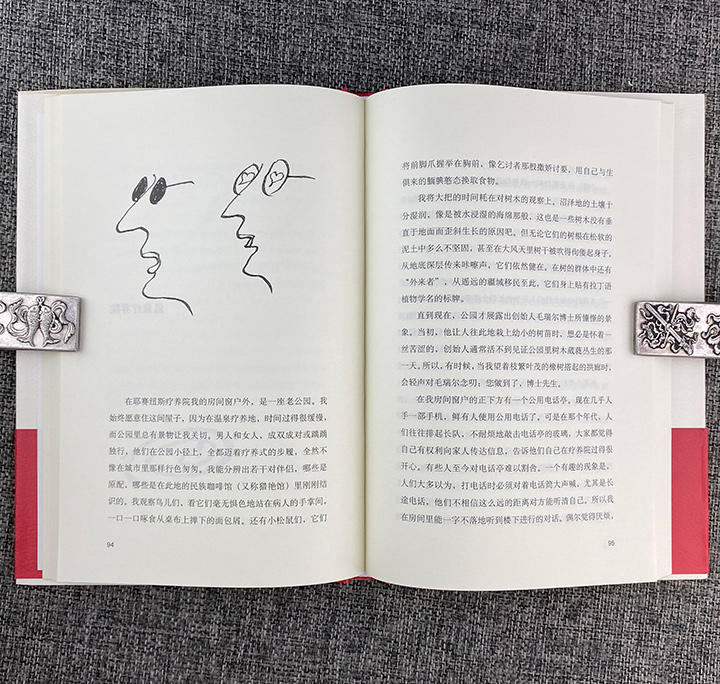 在耶赛纽斯疗养院我的房间窗户外，是一座老公园。我
始终愿意住这间屋子，因为在温泉疗养地，时间过得很缓慢，
而公园里总有景物让我关切。男人和女人，成双成对或踽踽
独行，他们在公园小径上，全都迈着疗养式的步履，全然不
像在城市里那样行色匆匆。我能分辨出若干对伴侣，哪些是
原配，哪些是在此地的民族咖啡馆（又称猎艳馆）里刚刚结
识的。我观察鸟儿们，看它们毫无惧色地站在病人的手掌间，
一口一口啄食从桌布上掸下的面包屑。还有小松鼠们，它们
94
将前脚爪握举在胸前，像乞讨者那般撒娇讨要，用自己与生
俱来的腼腆憨态换取食物。
我将大把的时间耗在对树木的观察上，沼泽地的土壤十
分湿润，像是被水浸湿的海绵那般，这也是一些树木没有垂
直于地面而歪斜生长的原因吧。但无论它们的树根在松软的
泥土中多么不坚固，甚至在大风天里树干被吹得佝偻起身子，
从地底深层传来咔嚓声，它们依然健在。在树的群体中还有
“外来者”，从遥远的疆域移民至此，它们身上贴有拉丁语
植物学名的标牌。
直到现在，公园才展露出创始人毛瑞尔博士所憧憬的景
象。当初，他让人往此地栽上幼小的树苗时，想必是怀着一
丝苦涩的，创始人通常活不到见证公园里树木葳蕤丛生的那
一天。所以，有时候，当我望着枝繁叶茂的橡树搭起的拱廊时，
会轻声对毛瑞尔念叨：您做到了，博士先生。
在我房间窗户的正下方有一个公用电话亭。现在几乎人
手一部手机，鲜有人使用公用电话了，可是在那个年代，人
们往往排起长队，不耐烦地敲击电话亭的玻璃，大家都觉得
自己有权利向家人传达信息，告诉他们自己在疗养院过得很
开心。有些人至今对电话亭难以割舍。一个有趣的现象是，
人们大多以为，打电话时必须对着电话筒大声喊，尤其是长
途电话，他们不相信这么远的距离对方能听清自己。所以我
在房间里能一字不落地听到楼下进行的对话。偶尔觉得厌烦，
95